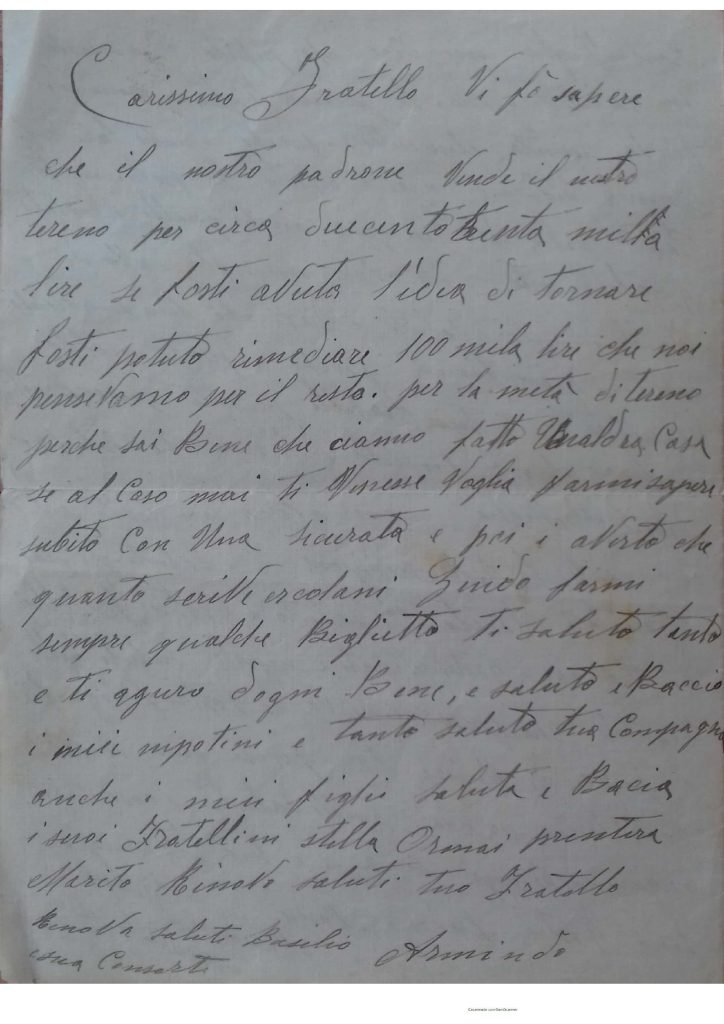 Carissimo Fratello Vi fò sapere
che il nostro padrone Vende il nostro
tereno per circa duecentotrenta milla
lire se fosti avuta l'idea di tornare
fosti potuto rimediare 100 mila lire che noi
pensevamo per il resto. per la metà di tereno
perche sai Bene che cianno fatto Unaldra Casa
se al Caso mai ti Venesse Voglia farmi sapere
subito Con Una sicurata e poi i averto che
quanto scrive ercolani Guido farmi
sempre qualche Biglietto ti saluto tanto
e ti aguro dogni Bene, e saluto e Baccio
i miei nipotini e tanto saluto tua Compagna
anche i miei figli saluta e Bacia
i suoi Fratellini stella Ormai prentera
Marito Rinovo saluti tuo Fratello
Rinova saluti Basilio Armindo
e sua Consorte
Scansionato con CamScanner